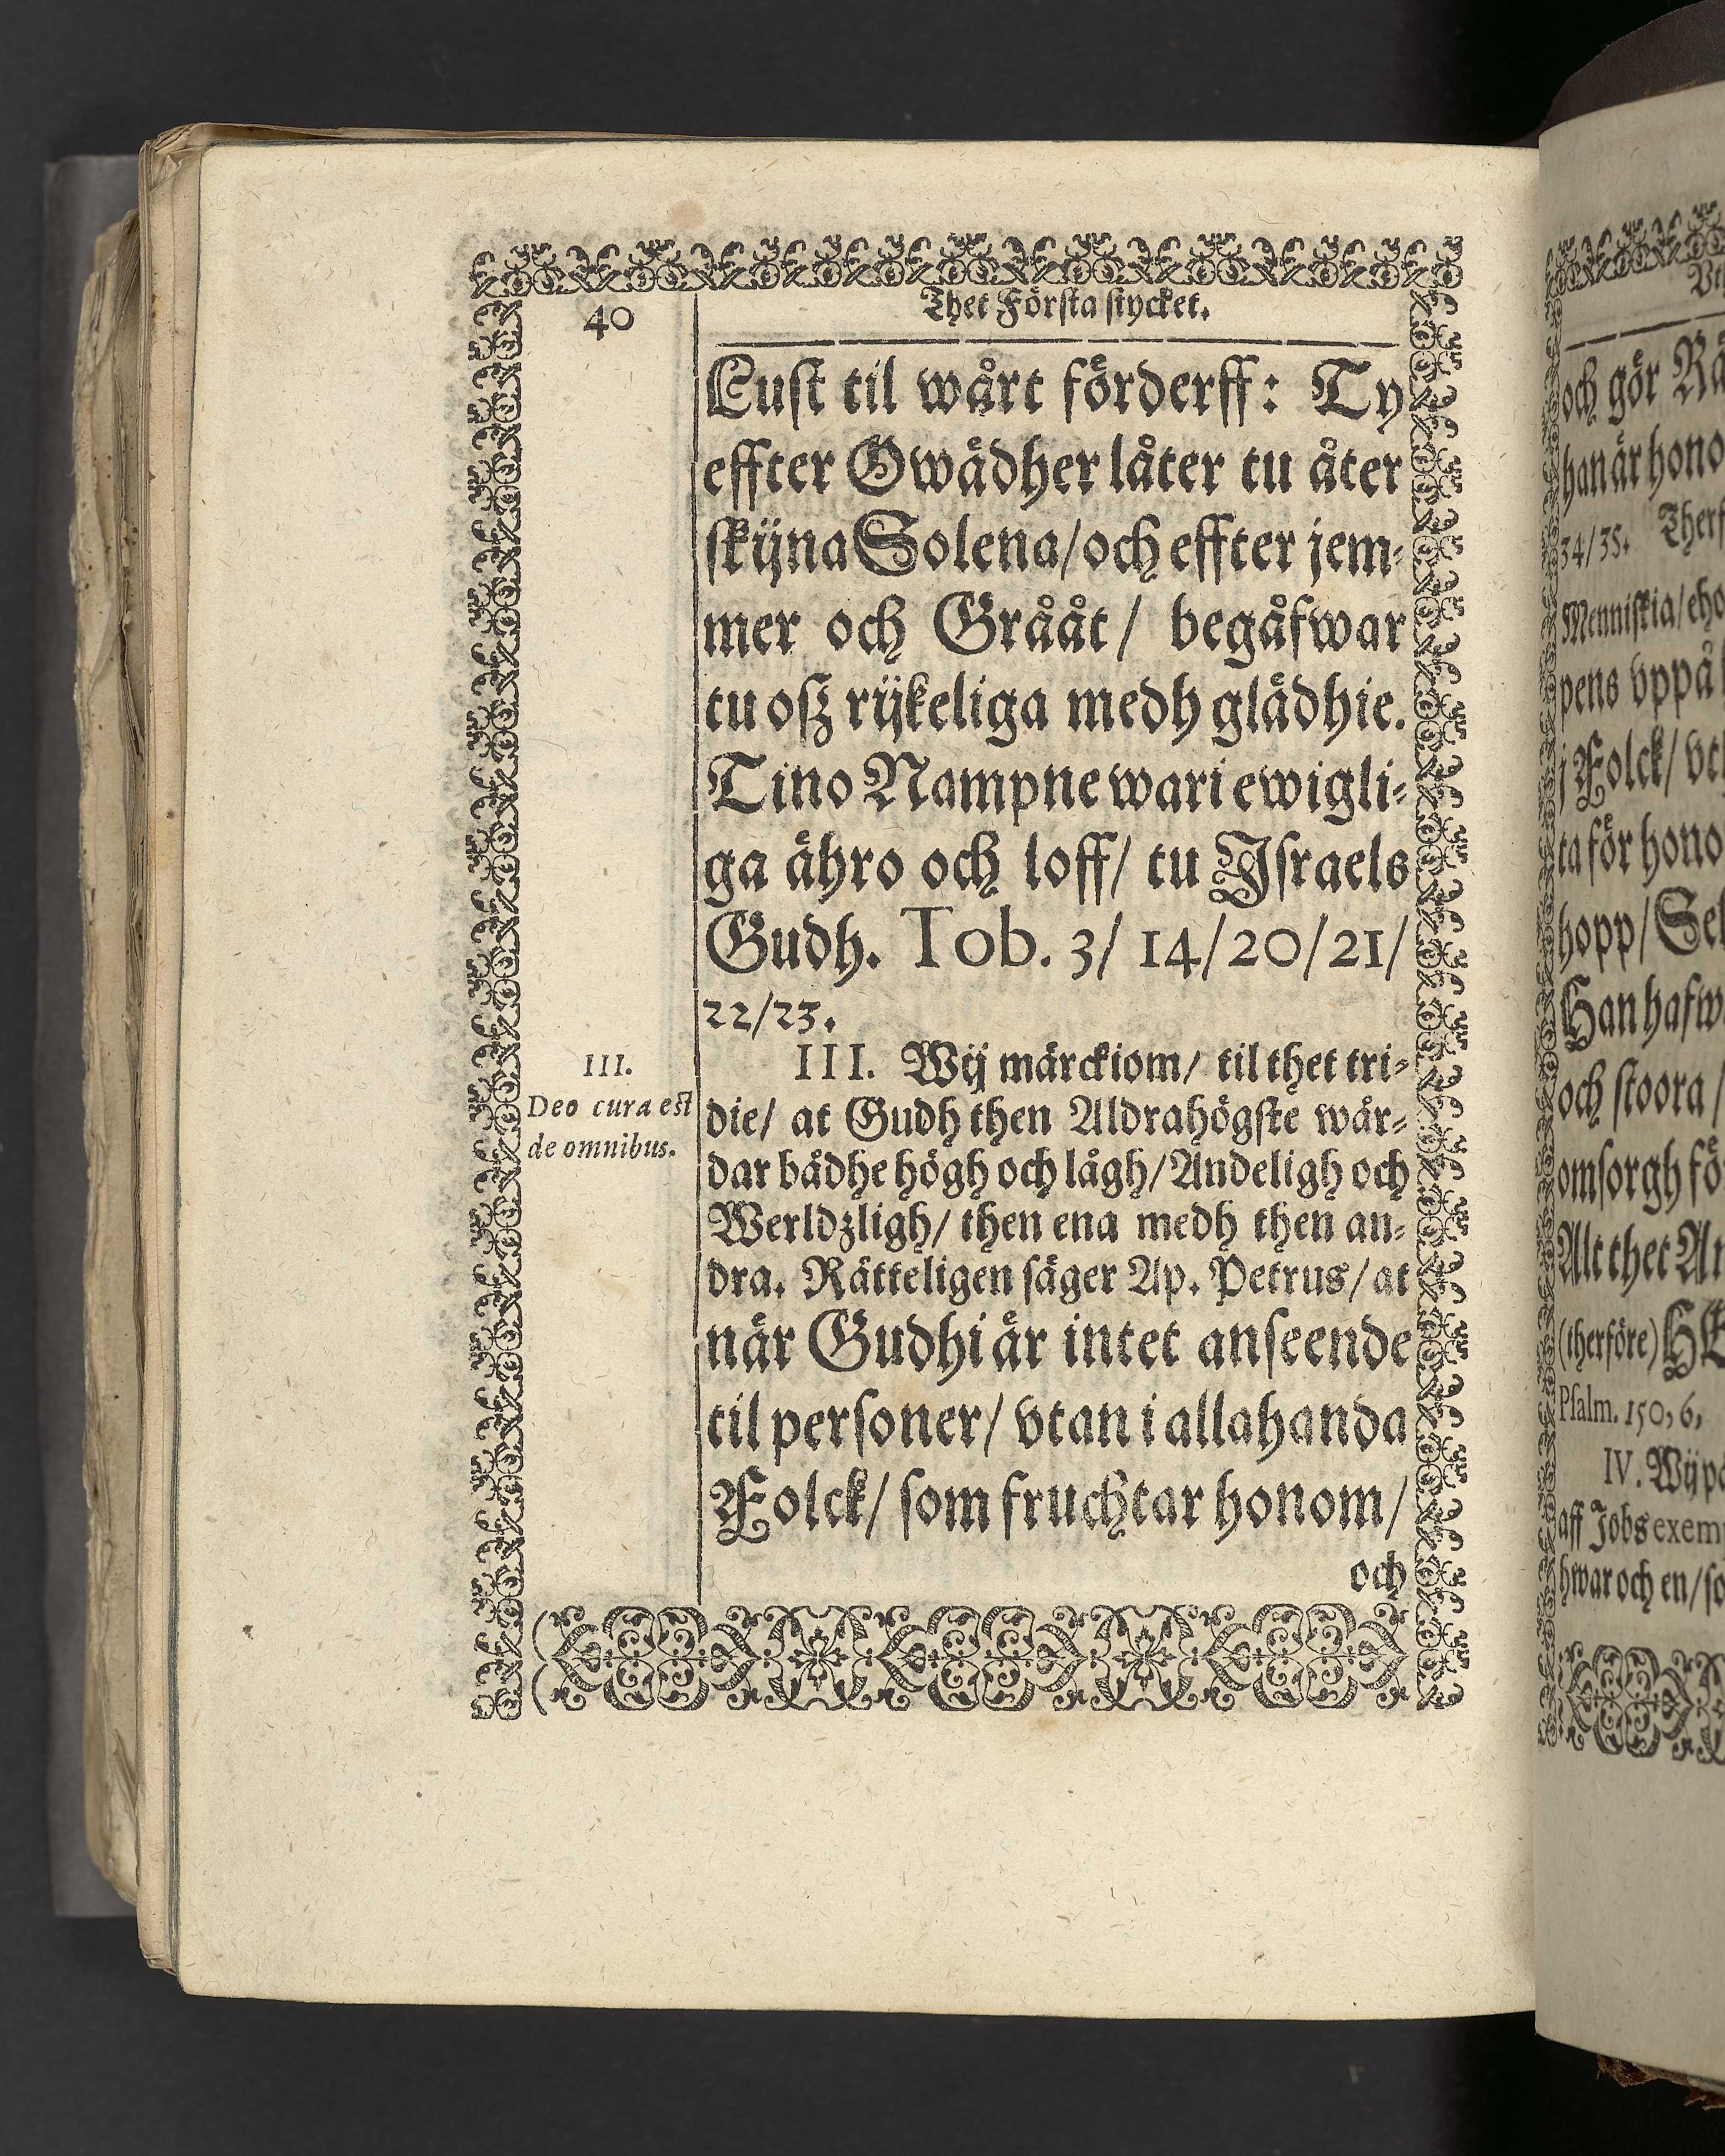 40
Thet Första stycket.
Lust til wårt förderff: Ty
effter Owädher låter tu åter
skijna Solena/och effter jem-
mer och Grååt/ begåfwar
tu oß rijkeliga medh glädhie.
Tino Nampne wari ewigli-
ga ähro och loff/ tu Israels
Gudh. Tob. 3/ 14/20/21/
22/23.
III.
Deo cura est
de omnibus.
III. Wij märckiom/ til thet tri-
die/ at Gudh then Aldrahögste wår-
dar bådhe högh och lågh/Andeligh och
Werldzligh/ then ena medh then an-
dra. Rätteligen säger Ap. Petrus/ at
när Gudhi är intet anseende
til personer/ vtan i allahanda
Folck/ som fruchtar honom/
och
och gör
han är
34/35.
Menniskia/
pens vppå
j Folck/
ta för
hopp/
Han
och stoora/
omsorgh
Alt thet
(therföre)
Psalm. 150, 6,
IV. Wij
aff Jobs
hwar och en/